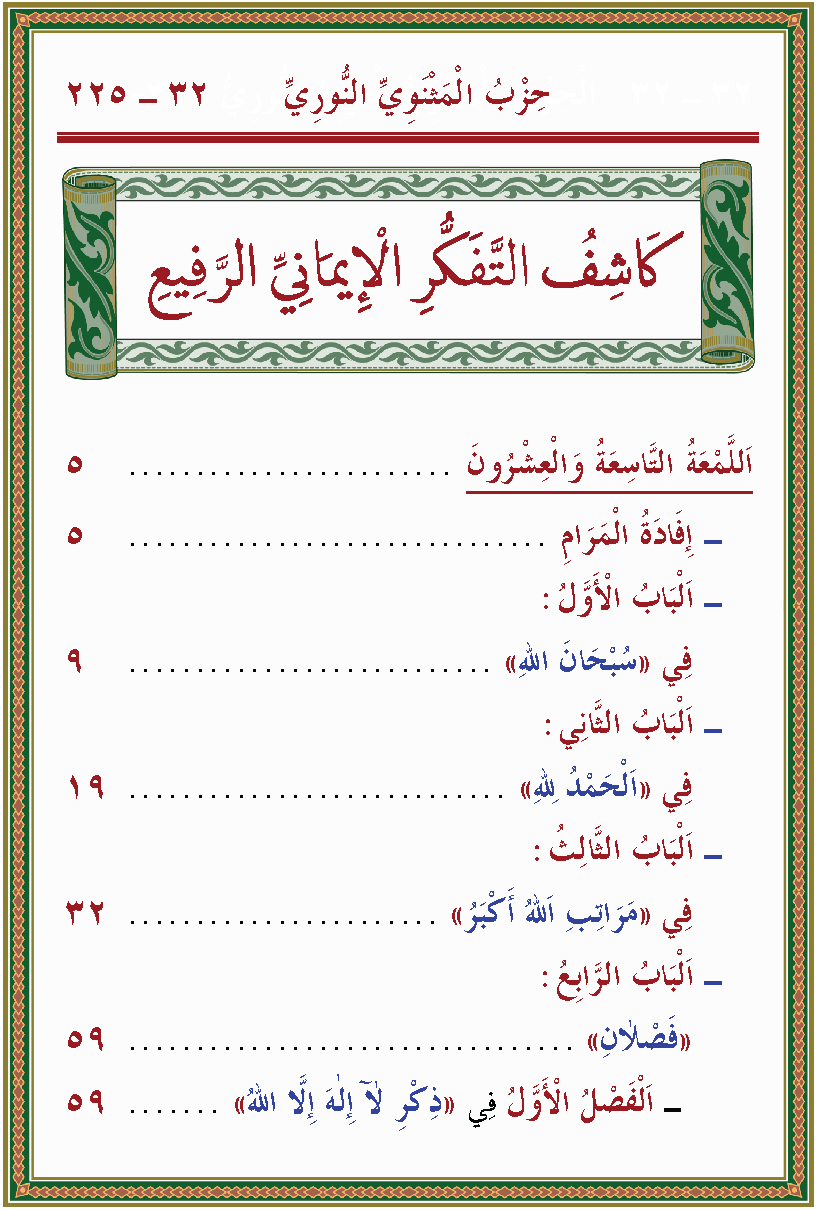 حِزْبُ الْمَثْنَوِيِّ النُّورِيِّ ٣٢ – ٢٢٥
كَاشِفُ التَّفَكُّرِ الْإِيمَانِيِّ الرَّفِيعِ
اَللَّمْعَةُ التَّاسِعَةُ وَالْعِشْرُونَ ........................ ٥
– إِفَادَةُ الْمَرَامِ ............................... ٥
– اَلْبَابُ الْأَوَّلُ :
فِي «سُبْحَانَ اللهِ» ........................... ٩
– اَلْبَابُ الثَّانِي :
فِي «اَلْحَمْدُ لِلهِ» ............................ ١٩
– اَلْبَابُ الثَّالِثُ :
فِي «مَرَاتِبِ اَللهُ أَكْبَرُ» ....................... ٣٢
– اَلْبَابُ الرَّابِعُ :
«فَصْلَانِ» ................................. ٥٩
– اَلْفَصْلُ الْأَوَّلُ فِي «ذِكْرِ لَآ إِلٰهَ إِلَّا اللهُ» ....... ٥٩